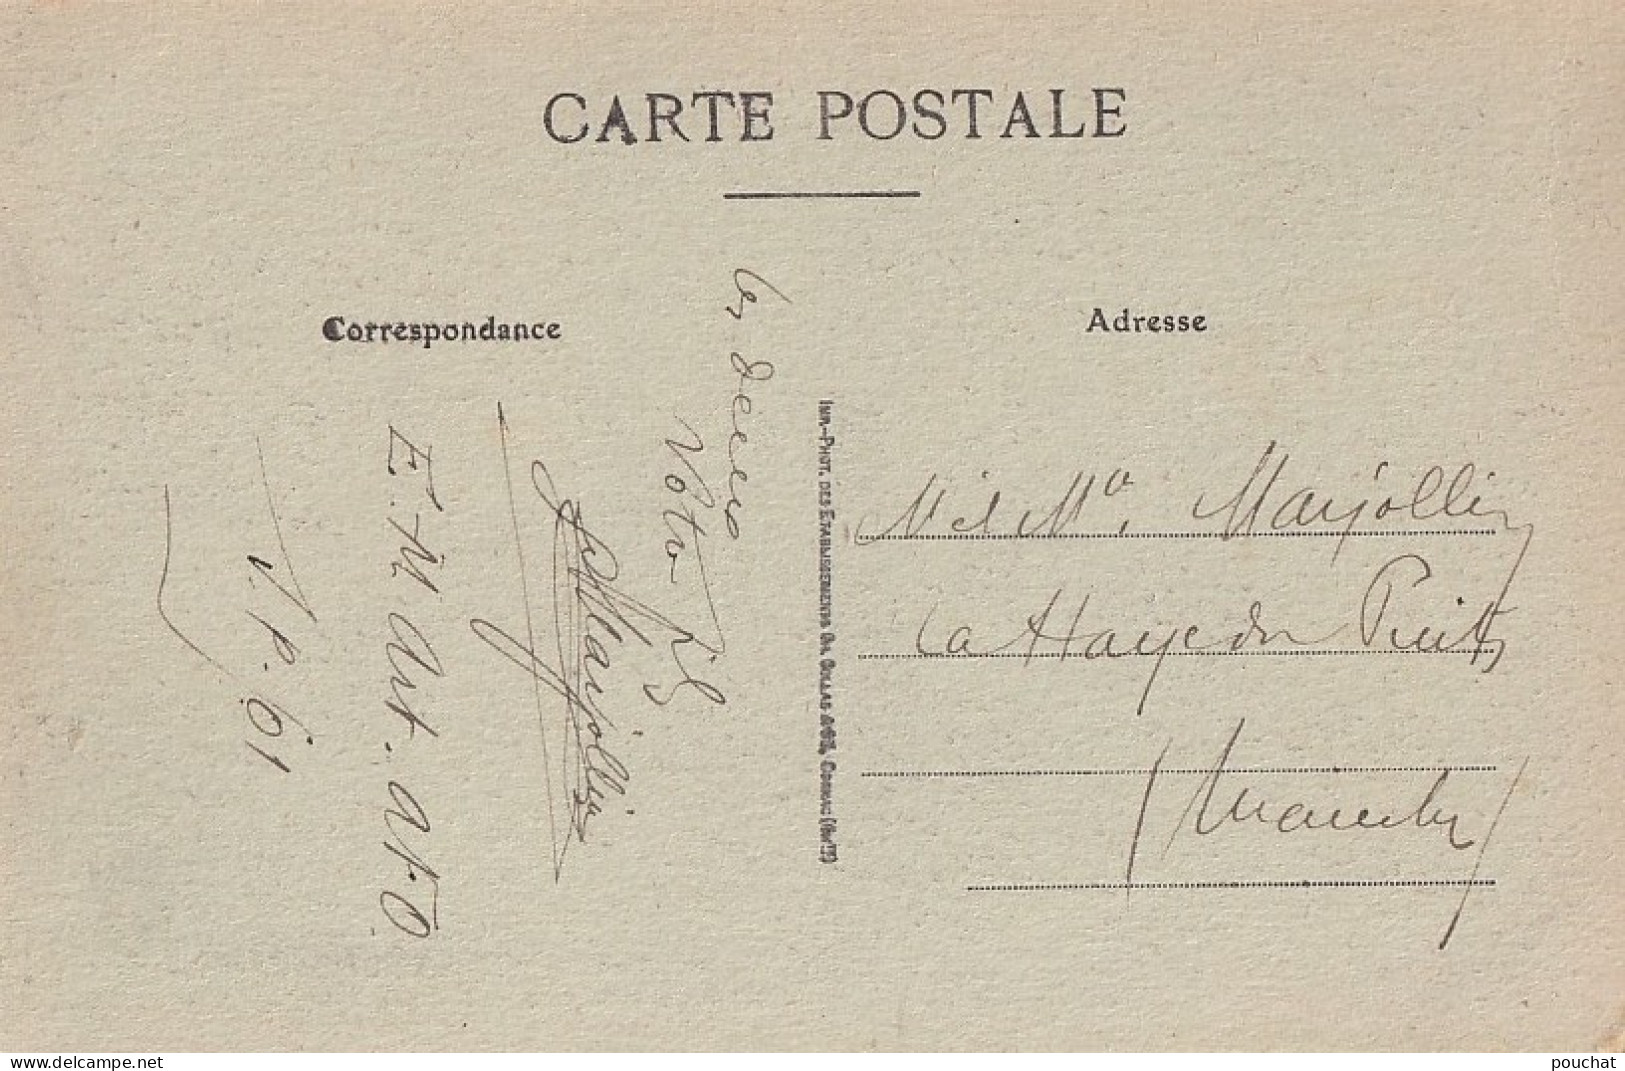 CARTE POSTALE
Correspondance
les deux
Votre fils
Marjollin
E. M. Art. At. D.
S. P. 61
IMP.-PHOT. DES ETABLISSEMENTS CH. COLLAS &amp; CIE, COGNAC
Adresse
M. et Me. Marjollin
La Haye du Puits
(Manche)
www.delcampe.net
pouchat